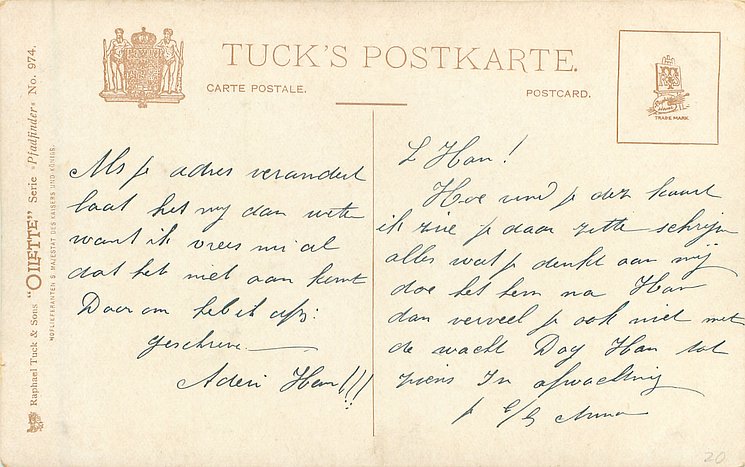 TUCK'S POSTKARTE.
CARTE POSTALE.
POSTCARD.
TRADE MARK
Raphael Tuck & Sons "OILETTE" Serie "Pfadfinder" No. 974.
HOFLIEFERANTEN S. MAJESTÄT DES KAISERS UND KÖNIGS.
Als je adres verandert
laat het mij dan weten
want ik vrees nu al
dat het niet aan komt
Daarom heb ik
geschreve
Adieu Han!!!
L Han!
Hoe vind je dez kaart
ik zie je daar zitte schrijve
alles wat je denkt aan mij
doe het hem na Han
dan verveel je ook niet met
de wacht Dag Han tot
ziens In afwachting
Anna
20